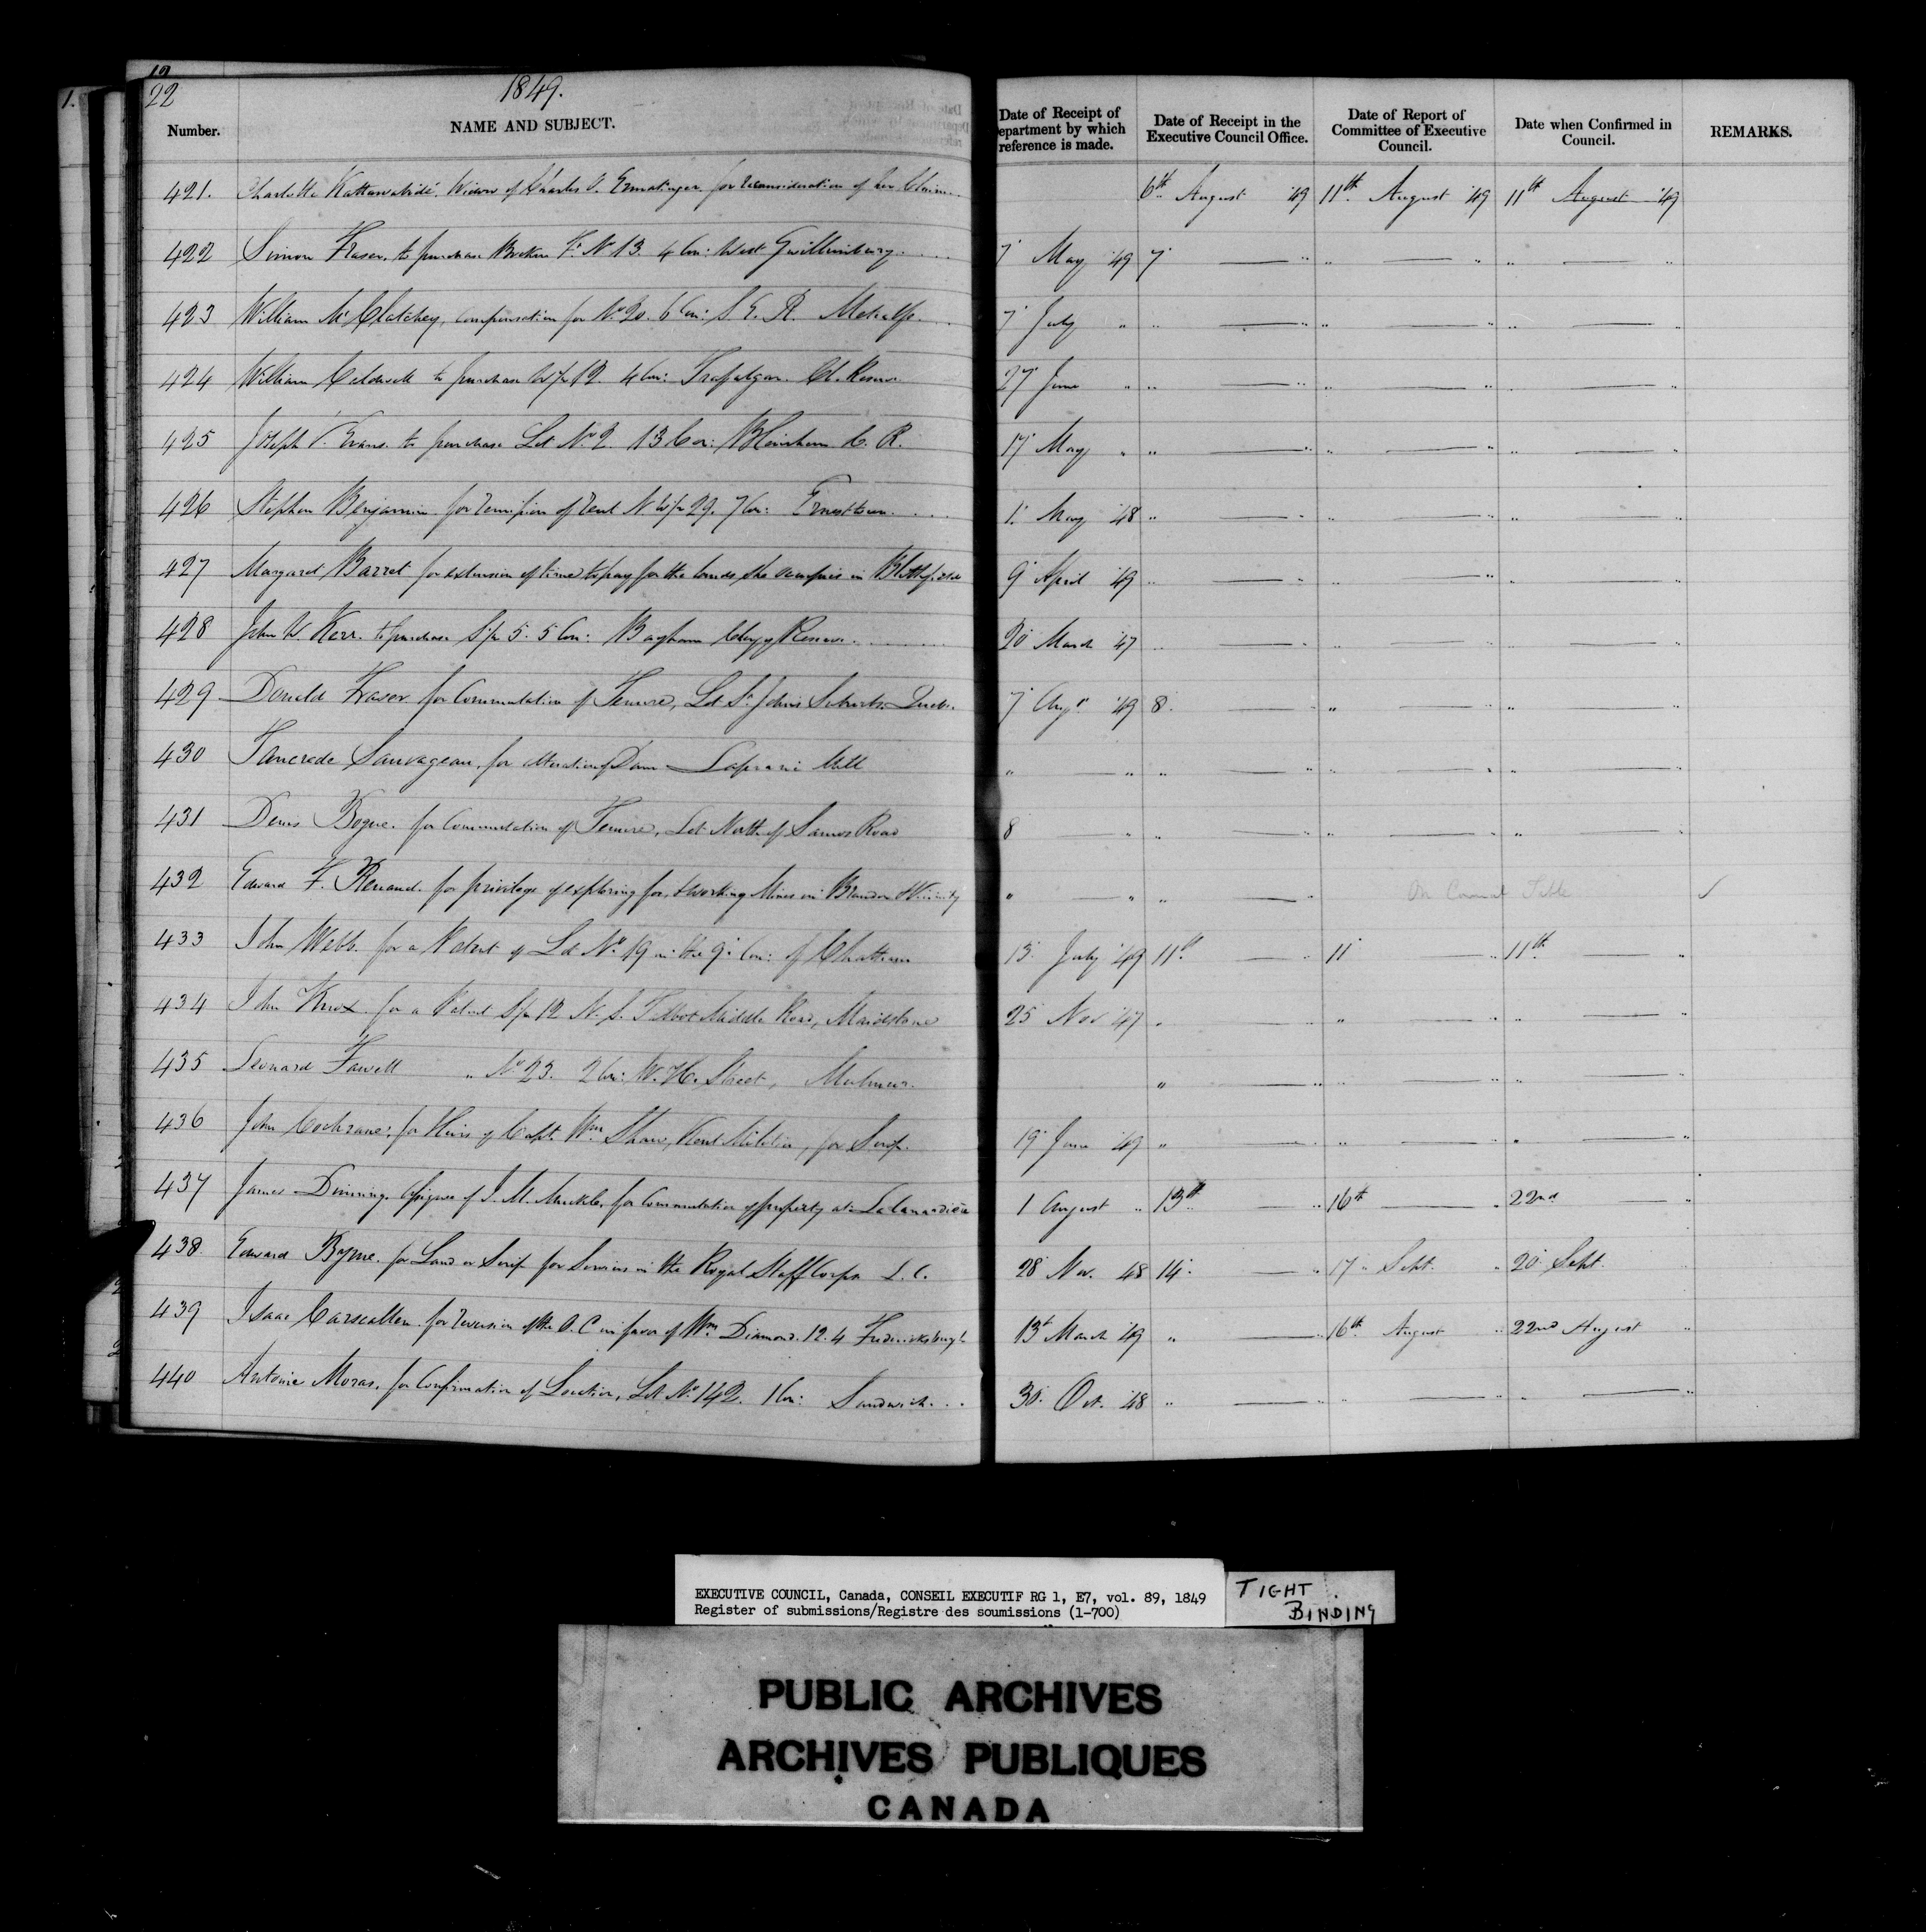 22
1849.
Number. NAME AND SUBJECT. Date of Receipt of epartment by which reference is made. Date of Receipt in the Executive Council Office. Date of Report of Committee of Executive Council. Date when Confirmed in Council. REMARKS.
421. Charlotte Widow of Charles O. Ermatinger for reconsideration of her Claim 6th August '49 11th August '49 11th August '49
422 Simon Fraser, to purchase Broken Ft. No 13. 4 Con: West Gwillimbury 7 May '49 7 — " " — " " — "
423 William McClatchey, compensation for No 20. 6 Con: S. E. R. Metcalfe 7 July " " — " " — " " — "
424 William Caldwell to purchase W 1/2 12. 4 Con: Trafalgar. Cl. Reserve 27 June " " — " " — " " — "
425 Joseph Evans to purchase Lot No 2. 13 Con: Blenheim C. R. 17 May " " — " " — " " — "
426 Stephen Benjamin for remission of rent N W 1/2 29. 7 Con: Ernesttown 1. May '48 " — " " — " " — "
427 Margaret Barret for extension of time to pay for the lands she occupies in 9 April '49 " — " " — " " — "
428 John W. Kerr. to purchase S 1/2 5. 5 Con: Bayham Clergy Reserve 20 March '47 " — " " — " " — "
429 Donald Fraser for Commutation of Tenure, Lot St. Johns Suburbs. Quebec 7 Augt '49 8. — " " — " " — "
430 Tancrede Sauvageau, for alteration of Dam Laprairie Mill " — " " — " " — " " — "
431 Denis Bogue. for Commutation of Tenure, Lot North of Samos Road 8 — " " — " " — " " — "
432 Edward F. Renaud. for privilege of exploring for, & working Mines in Brandon & Vicinity " — " " — " On Council Table ✓
433 John Webb. for a Patent of Lot No. 19 in the 9th Con: of Chatham 13. July '49 11th — " 11 — " 11th — "
434 John Knox. for a Patent S 1/2 12 N. S. Talbot Middle Road, Maidstone 25 Nov '47 " — " " — " " — "
435 Leonard Fawell " No 23. 2 Con: W. H. Street, Mulmur. " — " " — " " — "
436 John Cochrane, for Heirs of Capt. Wm Shaw, Kent Militia, for Scrip. 19 June '49 " — " " — " " — "
437 James Dinning. Assignee of J. M. for Commutation of property at La Canardière 1 August " 13th — " 16th — " 22nd — "
438 Edward Byrne. for Land or Scrip for Services in the Royal Staff Corps L. C. 28 Nov. 48 14 — " 17 Sept. " 20 Sept.
439 Isaac Carscallen for reversion of the O. C in favor of Wm Diamond. 12. 4 Fredericksburgh 13th March '49 " — " 16th August " 22nd August "
440 Antoine Moras, for Confirmation of Location, Lot No. 142. 1 Con: Sandwich 30. Oct. '48 " — " " — " " — "
EXECUTIVE COUNCIL, Canada, CONSEIL EXECUTIF RG 1, E7, vol. 89, 1849
Register of submissions/Registre des soumissions (1-700)
TIGHT
BINDING
PUBLIC ARCHIVES
ARCHIVES PUBLIQUES
CANADA